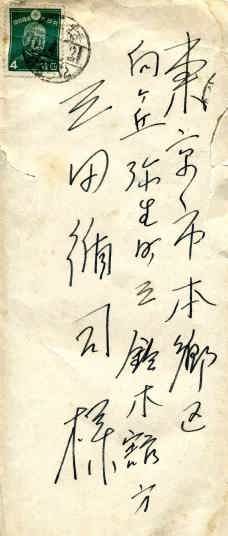 東京市本郷区
向ヶ丘弥生町三 鈴木館方
三田循司様
4